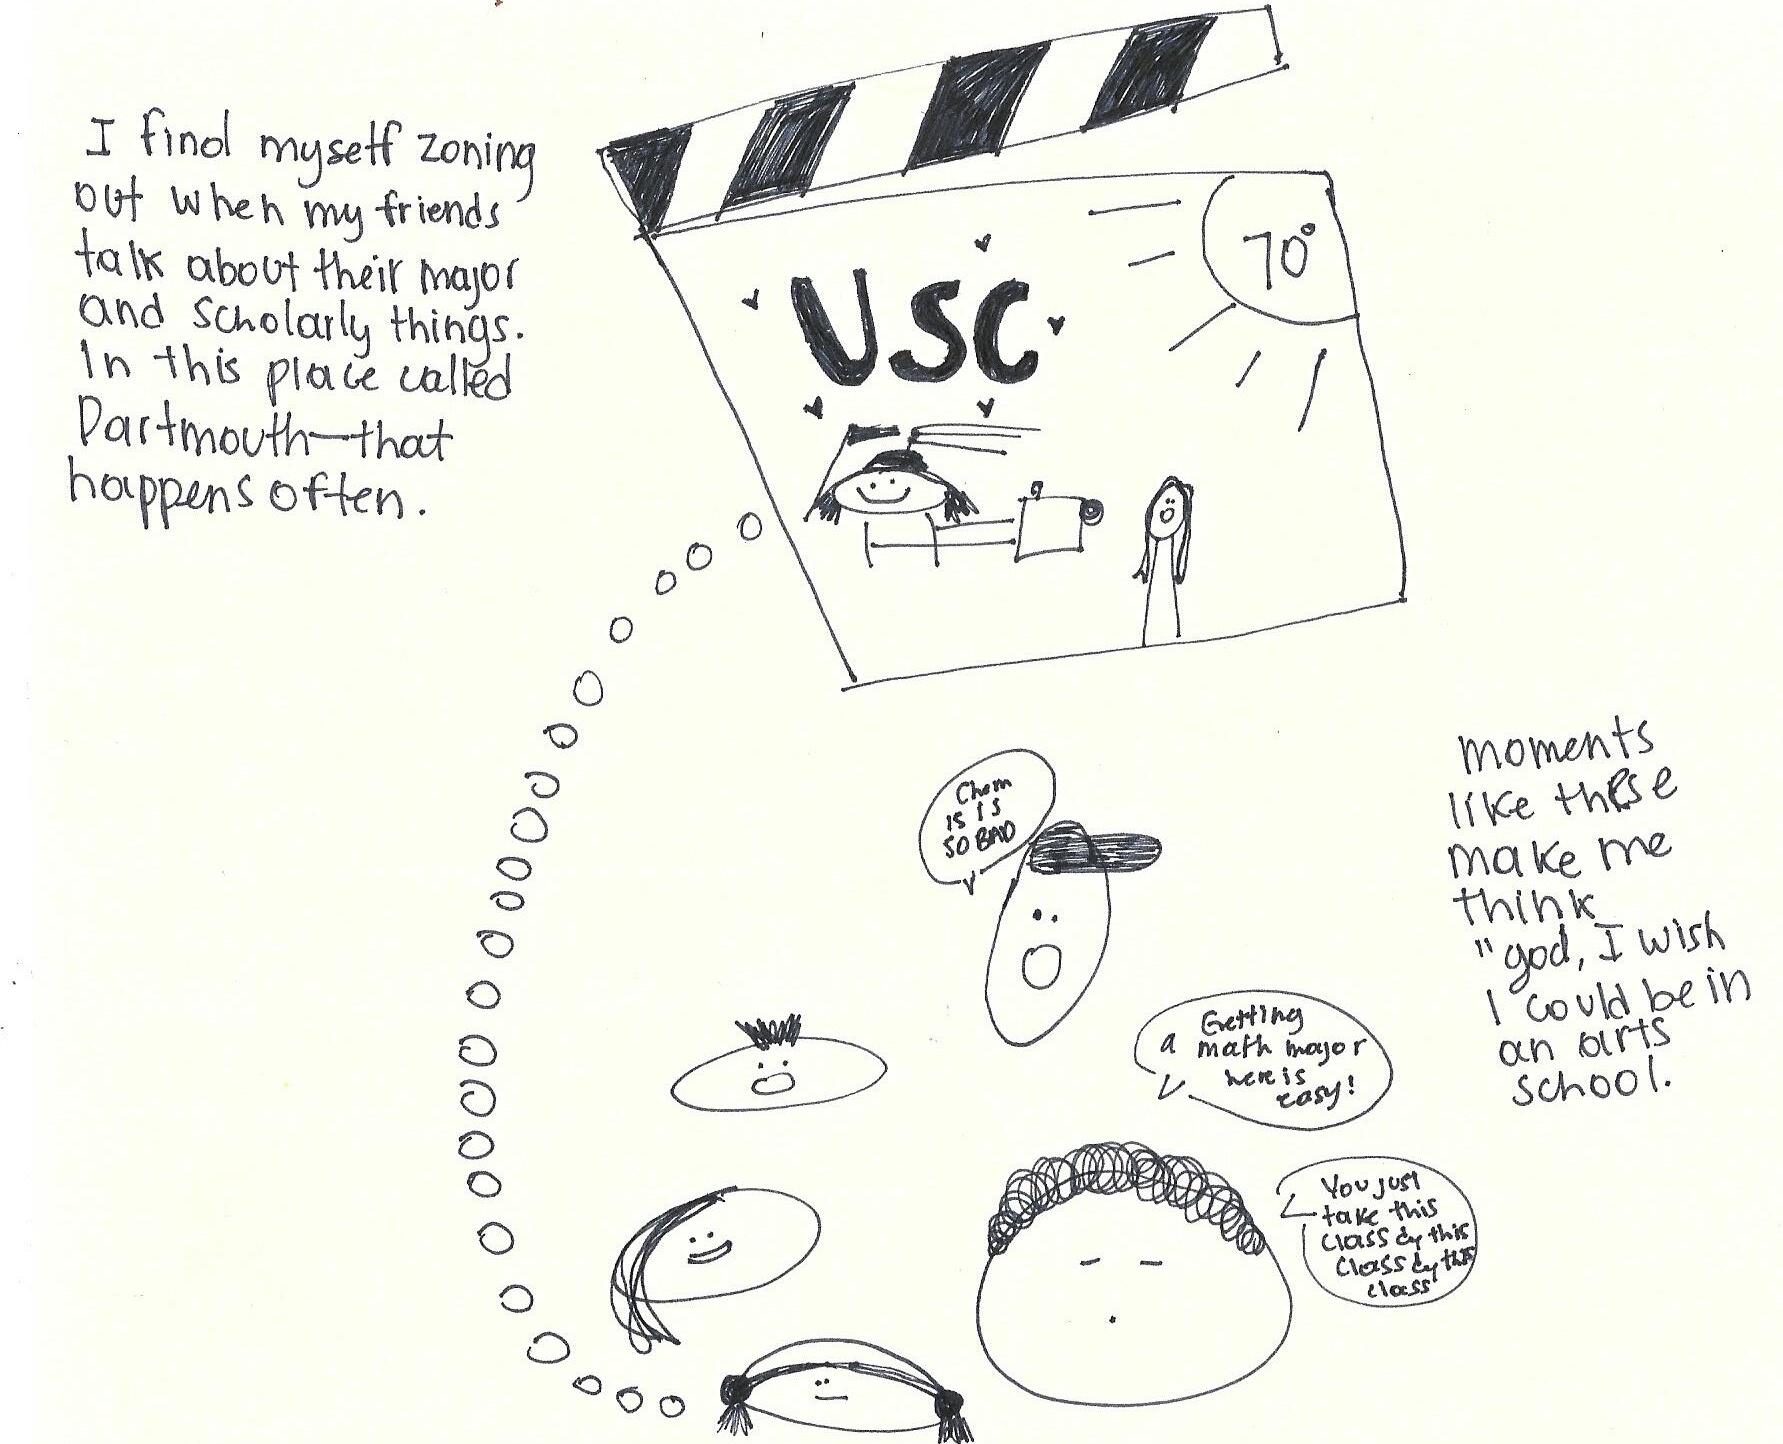 I find myself zoning
out when my friends
talk about their major
and scholarly things.
In this place called
Dartmouth—that
happens often.
USC
70°
Chem
is is
SO BAD
moments
like these
make me
think
"god, I wish
I could be in
an arts
school.
Getting
a math major
here is
easy!
You just
take this
class & this
class & this
class